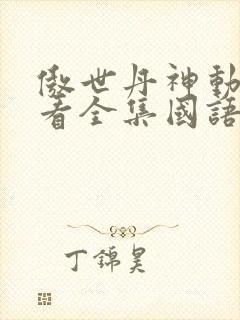 傲世丹神動
看全集國語
丁錦昊